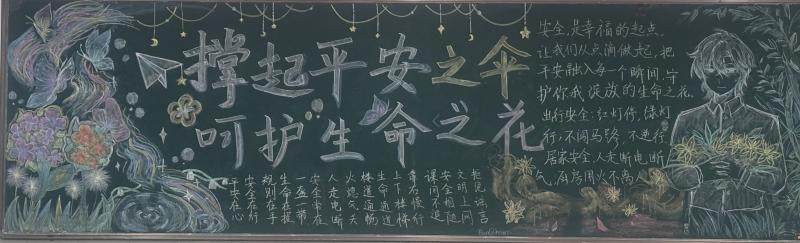 撑起平安之伞
呵护生命之花
安全是幸福的起点,
让我们从点滴做起,把
平安融入每一个瞬间,守
护你我绽放的生命之花.
出行安全:红灯停,绿灯
行;不闯马路,不逆行
居家安全:人走断电,断
气,厨房用火不离人
拒绝谣言
文明上网
安全相随
课间不追
靠右慢行
上下楼梯
生命通道
楼道通畅
火熄气关
人走电断
安全常在
一盔一带
生命在握
规则在手
安全在行
平安在心